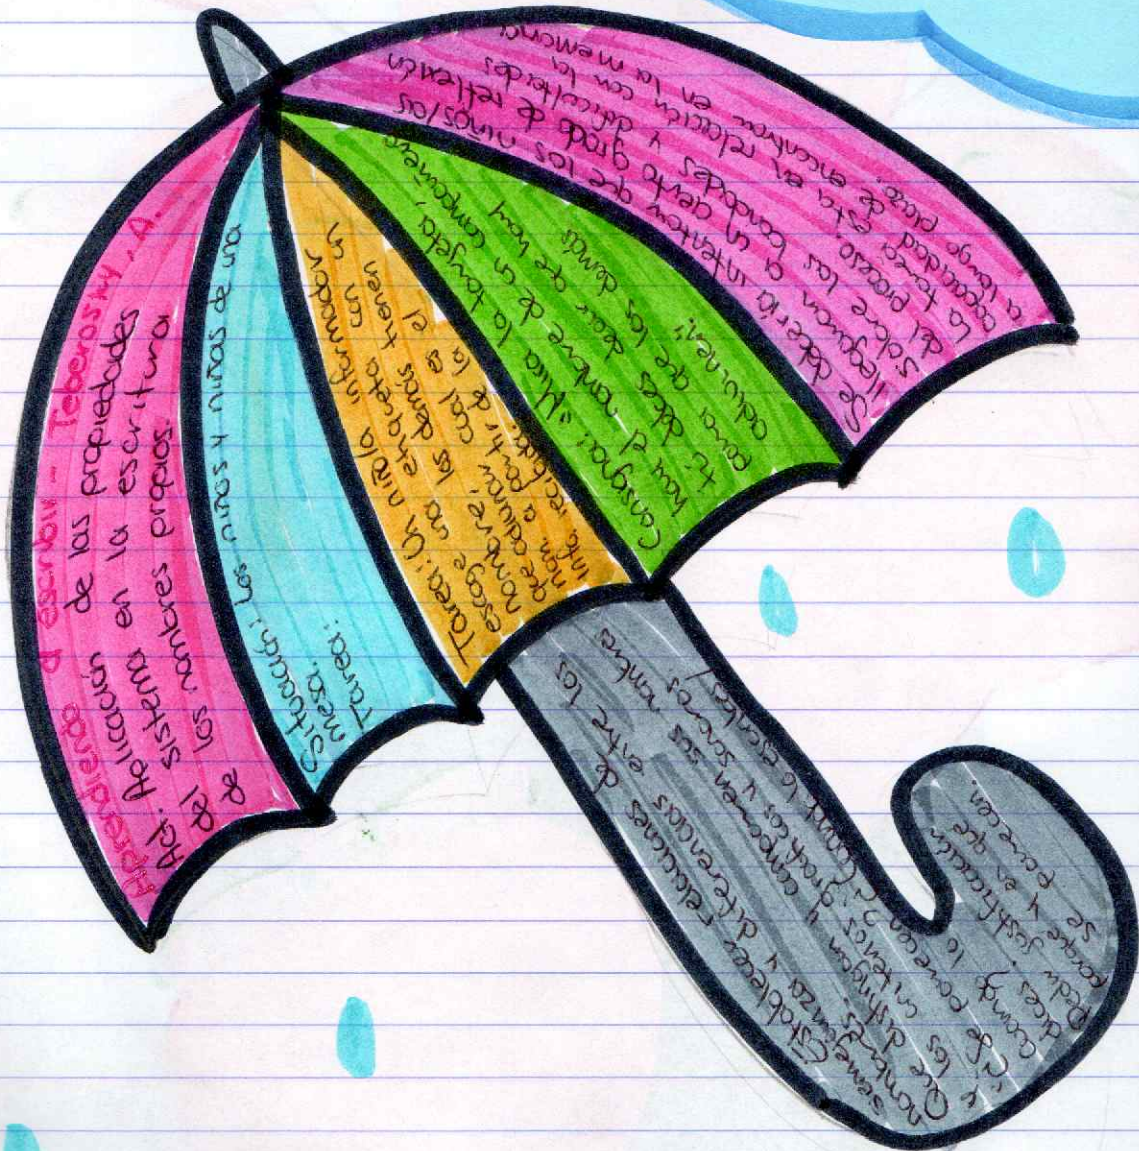 Aprendiendo a escribir - Teberosky, A.
Act. Aplicación de las propiedades
del sistema en la escritura
de los nombres propios.
Situación: Los niños y niñas de una
mesa.
Tarea:
Tarea: Un niño/a informador
escoge una etiqueta con un
nombre, los demás tienen
que adivinar cual es el
nom. a partir de la
info. recibida.
Consigna: "Mira la tarjeta,
hay el nombre de un compañero
tú debes decir que hay
para que los demás
adivinen".
Se debería intentar que los niños/as
lleguen a un cierto grado de reflexión
sobre las bondades y dificultades
del proceso. en relación con la
tarea esta en la memoria
La capacidad de encontrar
a largo plazo.
Establecer relaciones de
semejanza y diferencias entre los
nombres
Que distingan y comparen sus
los criterios gráficos y sonoros nombres
e "¿Se parecen? ¿Cuando lo escribes/
cuando lo
dices?
Pedir justificación
porque y en que
se parecen.